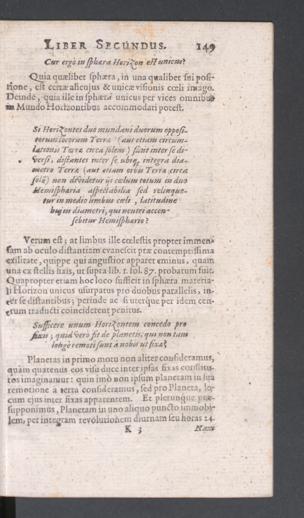 LIBER SECUNDUS. 149
Cur ergò in sphæra Horizon est unicus?
Quia quælibet sphæra, in una qualibet sui posi-
tione, est certæ alicujus & unicæ visionis cœli imago.
Deinde, quia ille in sphæra unicus per vices omnibus
in Mundo Horizontibus accommodari potest.
Si Horizontes duo mundani duorum opposi-
torum locorum Terræ (aut etiam circum-
latentis Terræ circa solem) sunt inter se di-
versi, distantes inter se ubiq, integra dia-
metro Terræ (aut etiam orbis Terræ circa
solē) non dividetur ig̃ cælum totum in duo
Hemispharia aspectabilia sed relinque-
tur in medio limbus cœli, latitudine
hujus diametri, qui neutri accen-
sebitur Hemisphærio?
Verum est; at limbus ille cœlestis propter immen-
sam ab oculo distantiam evanescit præ contemptissima
exilitate, quippe qui angustior apparet eminus, quam
una ex stellis fixis, ut supra lib. 1. fol. 87. probatum fuit.
Quapropter etiam hoc loco sufficit in sphæra materia-
li Horizon unicus usurpatus pro duobus parallelis, in-
ter se distantibus; perinde ac si uterque per idem cen-
trum traducti coinciderent penitus.
Sufficere unum Horizontem concedo pro
fixis; quid verò fit de planetis, qui non tam
longè remoti sunt à nobis ut fixæ?
Planetas in primo motu non aliter consideramus,
quàm quatenus eos visu duce inter ipsas fixas constitu-
tos imaginamur: quin imò non ipsum planetam in sua
remotione à terra consideramus, sed pro Planeta, lo-
cum ejus inter fixas apparentem. Et plerunque præ-
supponimus, Planetam in uno aliquo puncto immobi-
lem, per integram revolutionem diurnam seu horas 24.
K 3 Nam